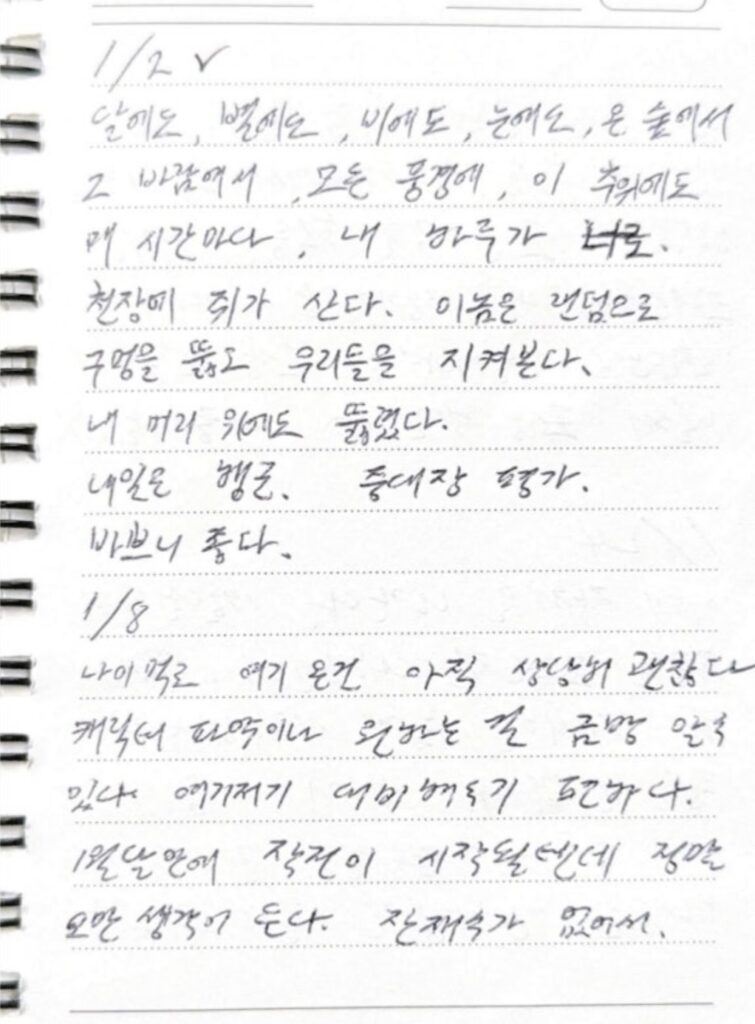 1/2 ✓
달에도, 별에도, 비에도, 눈에도, 온 숲에서
그 바람에서, 모든 풍경에, 이 추위에도
매 시간마다, 내 하루가 너로.
천장에 쥐가 산다. 이놈은 랜덤으로
구멍을 뚫고 우리들을 지켜본다.
내 머리 위에도 뚫렸다.
내일은 행군. 중대장 평가.
바쁘니 좋다.
1/8
나이먹고 여기 온건 아직 상당히 괜찮다
캐릭터 파악이나 원하는 걸 금방 알 수
있다. 여기저기 대비해두기 편하다.
1월달안에 작전이 시작될텐데 정말
오만 생각이 든다. 잔재주가 없어서.